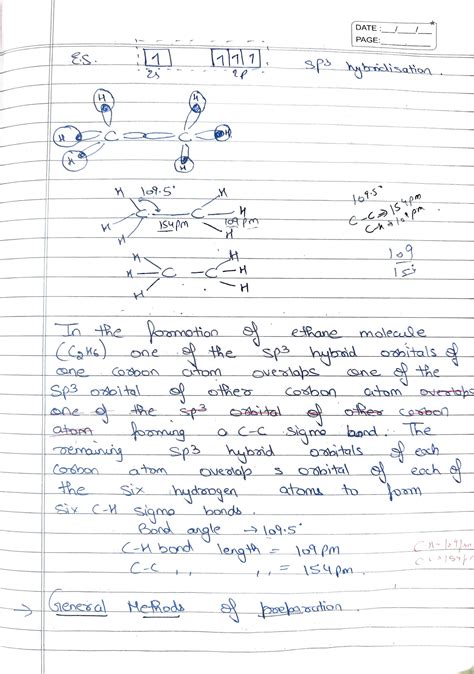 DATE: __/__/__
PAGE:
E.S. 1 1 1 1 sp3 hybridisation.
2s 2p
H H
H C C H
H H
H 109.5° H 109.5°
C C H C-C → 154pm
H 154pm 109pm C-H → 109pm
H H
H H 109
H C C H
H H
In the formation of ethane molecule
(C2H6) one of the sp3 hybrid orbitals of
one carbon atom overlaps one of the
sp3 orbital of other carbon atom overlaps
one of the sp3 orbital of other carbon
atom forming a C-C sigma bond. The
remaining sp3 hybrid orbitals of each
carbon atom overlap s orbital of each of
the six hydrogen atoms to form
six C-H sigma bonds.
Bond angle → 109.5°
C-H bond length = 109 pm
C-C ,, ,, = 154pm.
→ General Methods of preparation.